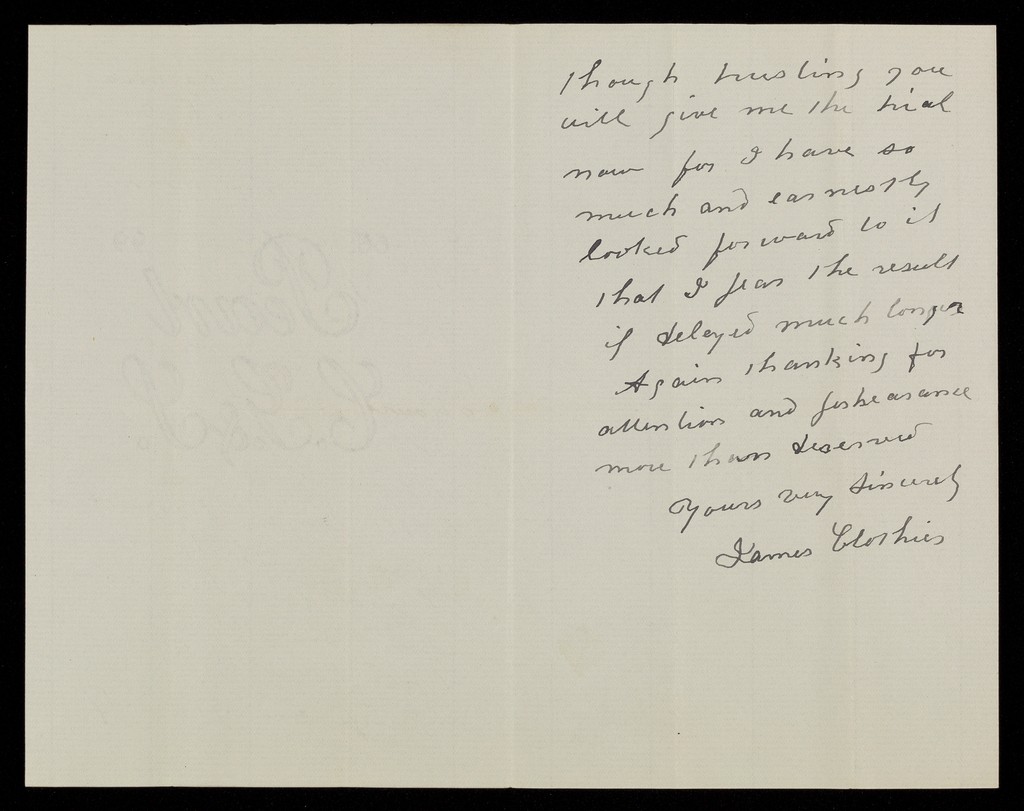 though trusting you
will give me the trial
now for I have so
much and earnestly
looked forward to it
that I fear the result
if delayed much longer
Again thanking for
attention and forbearance
more than deserved
Yours very sincerely
James